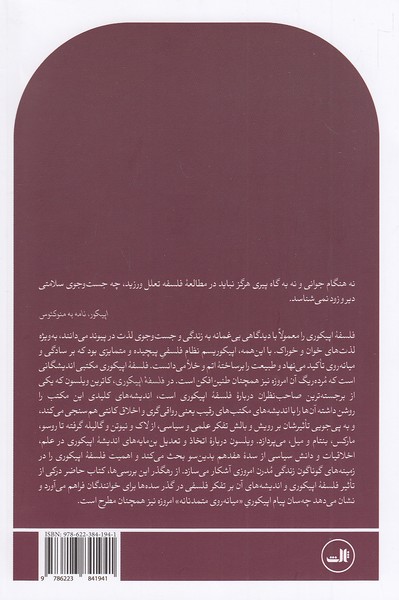 نه هنگام جوانی و نه به گاه پیری هرگز نباید در مطالعهٔ فلسفه تعلل ورزید، چه جست‌وجوی سلامتی
دیر و زود نمی‌شناسد.
اپیکور، نامه به منوکئوس
فلسفهٔ اپیکوری را معمولاً با دیدگاهی بی‌غمانه به زندگی و جست‌وجوی لذت در پیوند می‌دانند، به‌ویژه
لذت‌های خوان و خوراک. با این‌همه، اپیکوریسم نظام فلسفی پیچیده و متمایزی بود که بر سادگی و
میانه‌روی تأکید می‌نهاد و طبیعت را برساختهٔ اتم و خلأ می‌دانست. فلسفهٔ اپیکوری مکتبی اندیشگانی
است که مُرده‌ریگ آن امروزه نیز همچنان طنین‌افکن است. در فلسفهٔ اپیکوری، کاترین ویلسون که یکی
از برجسته‌ترین صاحب‌نظران دربارهٔ فلسفهٔ اپیکوری است، اندیشه‌های کلیدی این مکتب را
روشن داشته آن‌ها را با اندیشه‌های مکتب‌های رقیب یعنی رواقی‌گری و اخلاق کانتی هم‌سنجی می‌کند،
و به پی‌جویی تأثیرشان بر رویش و بالش تفکر علمی و سیاسی، از لاک و نیوتن و گالیله گرفته تا روسو،
مارکس، بنتام و میل، می‌پردازد. ویلسون دربارهٔ اتخاذ و تعدیل بن‌مایه‌های اندیشهٔ اپیکوری در علم،
اخلاقیات و دانش سیاسی از سدهٔ هفدهم بدین‌سو بحث می‌کند و اهمیت فلسفهٔ اپیکوری را در
زمینه‌های گوناگون زندگی مُدرن امروزی آشکار می‌سازد. از رهگذر این بررسی‌ها، کتاب حاضر درکی از
تأثیر فلسفهٔ اپیکوری و اندیشه‌های آن بر تفکر فلسفی در گذر سده‌ها برای خوانندگان فراهم می‌آورد و
نشان می‌دهد چه‌سان پیام اپیکوریِ «میانه‌روی متمدنانه» امروزه نیز همچنان مطرح است.
ISBN: 978-622-384-194-1
9 786223 841941
ثالث